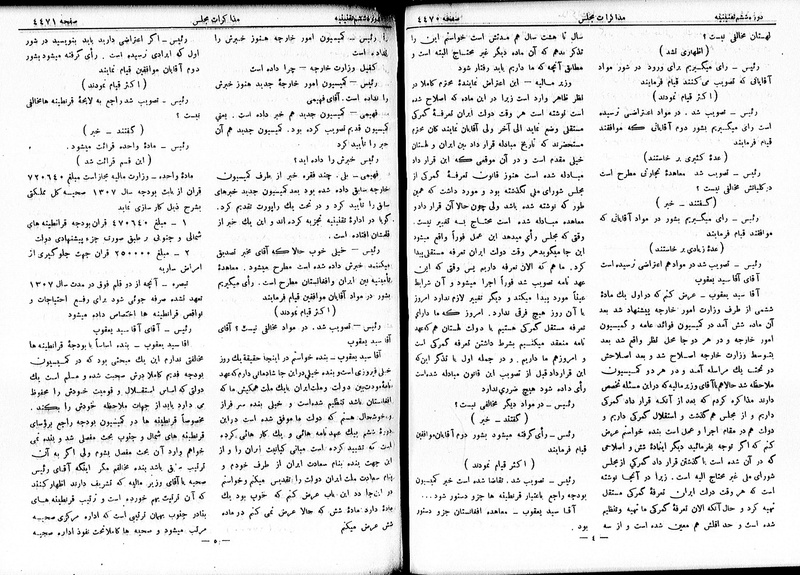 دوره ششم تقنینیه
مذاکرات مجلس
صفحه ۴۴۷۰
لهستان مخالفی نیست؟
(اظهاری نشد)
رئیس ـ رأی میگیریم برای ورود در شور مواد
آقایانی که تصویب می‌کنند قیام فرمایند
(اکثر قیام نمودند)
رئیس ـ تصویب شد. در مواد اعتراضی نرسیده
است رأی میگیریم بشور دوم آقایانی که موافقند
قیام فرمایند
(عدهٔ کثیری برخاستند)
رئیس ـ تصویب شد معاهدهٔ تجارتی مطرح است
در کلیاتش مخالفی نیست؟
(گفتند ـ خیر)
رئیس ـ رأی میگیریم بشور در مواد آقایانی که
موافقند قیام فرمایند
(عدهٔ زیادی برخاستند)
رئیس ـ تصویب شد در مواد هم اعتراضی نرسیده است
آقای آقا سید یعقوب
آقا سید یعقوب ـ عرض کنم که در اول یك مادهٔ
ششمی از طرف وزارت امور خارجه پیشنهاد شد بعد
آن ماده شش آمد در کمیسیون فوائد عامه و کمیسیون
امور خارجه و در هر دو جا محل نظر واقع شد بعد
بتوسط وزارت خارجه اصلاح شد و بعد اصلاحش
در تحت یك مراسله آمد و در هر دو کمیسیون
ملاحظه شد حالا هم با آقای وزیر مالیه که در این مسئله تخصص
دارند مذاکره کردم که بعد از آنکه قرار داد گمرکی
داریم و از مجلس هم گذشت و استقلال گمرکی داریم و
دولت هم در مقام اجرا و عمل است بنده خواستم عرض
کنم که اگر توجه بفرمائید دیگر اینمادهٔ شش و اصلاحی
که در آن شده است با گذشتن قرار داد گمرکی از مجلس
شورای ملی غیر محتاج الیه است. زیرا در آنجا نوشته
است که هر وقت دولت ایران تعرفهٔ گمرکی مستقل
تهیه کرد و حال آنکه الان تعرفهٔ گمرکی ما تهیه و تنظیم
شده است و حد اقلش هم معین شده است و از سه
سال تا هشت سال هم مدتش است خواستم این را
تذکر بدهم که آن ماده دیگر غیر محتاج الیه است و
مطابق آنچه که ما داریم باید رفتار شود
وزیر مالیه ـ این اعتراض نمایندهٔ محترم کاملا در
نظر ظاهر وارد است زیرا در این ماده که اصلاح شده
است نوشته است هر وقت دولت ایران تعرفهٔ گمرکی
مستقلی وضع نماید الی آخر ولی آقایان نمایند کان محترم
مستحضرند که تاریخ مبادله قرار داد بین ایران و لهستان
خیلی مقدم است و در آن موقعی که این قرار داد
مبادله شده است هنوز قانون تعرفهٔ گمرکی از
مجلس شورای ملی نگذشته بود و مورد داشت که همین
طور که نوشته شده باشد ولی چون حالا آن قرار داد و
معاهده مبادله شده است محتاج به تغییر نیست.
وقتی که مجلس رأی میدهد این عمل فوراً واقع میشود
این جا میگوید هر وقت دولت ایران تعرفه مستقلی پیدا
کرد. ما هم که الان تعرفه داریم پس وقتی که این
عهد نامه تصویب شد فوراً اجرا میشود و آن شرایط
عیناً مورد پیدا میکند و دیگر تغییر لازم ندارد امروز
با آن روز هیچ فرقی ندارد. امروز که ما دارای
تعرفه مستقل گمرکی هستیم با دولت لهستان هم که عهد
نامه منعقد میکنیم بشرط داشتن تعرفه گمرکی است
و امروز هم ما داریم. و در جمله اول با تذکر این که
این قرارداد قبل از تصویب این قانون مبادله شده است
رأی داده شود هیچ ضرری ندارد
رئیس ـ در مواد دیگر مخالفی نیست؟
(گفتند ـ خیر)
رئیس ـ رأی گرفته میشود بشور دوم آقایان موافقین
قیام فرمایند
(اکثر قیام نمودند)
رئیس ـ تصویب شد. تقاضا شده است خبر کمیسیون
بودجه راجع باعتبار قرنطینه ها جزو دستور شود...
آقا سید یعقوب ـ معاهده افغانستان جزو دستور
بود.
ـ ۴ ـ
دوره ششم تقنینیه
مذاکرات مجلس
صفحه ۴۴۷۱
رئیس ـ کمیسیون امور خارجه هنوز خبرش را
نداده است
کفیل وزارت خارجه ـ چرا داده است
رئیس ـ کمیسیون امور خارجهٔ جدید هنوز خبرش
را نداده است. آقای فهیمی
فهیمی ـ کمیسیون جدید هم خبر داده است. یعنی
کمیسیون قدیم تصویب کرده بود. کمیسیون جدید هم آن
خبر را تأیید کرد
رئیس خبرش را داده اید؟
فهیمی ـ بلی. چند فقره خبر از طرف کمیسیون
خارجه سابق داده شده بود بعد کمیسیون جدید خبرهای
سابق را تأیید کرد و در تحت یك راپورت تقدیم کرد.
گویا در ادارهٔ تقنینیه تجزیه کرده اند و این یك خبر از
قلمشان افتاده است.
رئیس ـ خیلی خوب حالا که آقای مخبر تصدیق
میکنند خبرش داده شده است مطرح میشود. معاهدهٔ
تأمینیه بین ایران و افغانستان مطرح است. رأی میگیریم
بشور در مواد آقایان موافقین قیام فرمایند
(اکثر قیام نمودند)
رئیس ـ تصویب شد. در مواد مخالفی نیست؟ آقای
آقا سید یعقوب
آقا سید یعقوب ـ بنده خواستم در اینجا حقیقة یك روز
خیلی فیروزی است و بنده خیلی در این جا شادمانی دارم که عهد
نامهٔ مودت بین دولت و ملت ایران با یك ملت همکیش ما که
افغانستان باشد تنظیم شده است و خیلی بنده سر فراز
و خوشحال هستم که دولت ما موفق شده است در این
دورهٔ ششم بیك عهد نامه هائی و یك کار هائی کرده
است که تشیید کرده است مبانی کیانیت ایران را و از
این جهت بنده بنام سعادت ایران از طرف خودم و
بنام سعادت ملت ایران دولت را تقدیس میکنم و خواستم
در این جا دد این باب عرض کنم که خوب بود یك
مادهٔ دارد. مادهٔ شش که حالا عرض نمی کنم در ماده
شش عرض میکنم
رئیس ـ اگر اعتراضی دارید باید بنویسید در شور
اول که ایرادی نرسیده است. رأی گرفته میشود بشور
دوم آقایان موافقین قیام نمایند
(اکثر قیام نمودند)
رئیس ـ تصویب شد راجع به لایحهٔ قرنطینه ها مخالفی
نیست؟
(گفتند ـ خیر)
رئیس ـ مادهٔ واحده قرائت میشود.
(این قسم قرائت شد)
مادهٔ واحده ـ وزارت مالیه مجاز است مبلغ ۷۲۰۶۴۰
قران از بابت بودجه سال ۱۳۰۷ صحیه کل مملکتی
بشرح ذیل کار سازی نماید
۱ ـ مبلغ ۴۷۰۶۴۰ قران بودجه قرانطینه های
شمالی و جنوبی بر طبق صورف جزء پیشنهادی دولت
۲ ـ مبلغ ۲۵۰۰۰۰ قران جهت جلوگیری از
امراض ساریه
تبصره ـ آنچه از دو قلم فوق در مدت سال ۱۳۰۷
تعهد نشده صرفه جوئی شود برای رفع احتیاجات و
نواقص قرانطینه ها اختصاص داده میشود
رئیس ـ آقای آقا سید یعقوب
آقا سید یعقوب ـ بنده اساساً با بودجهٔ قرانطینه ها
مخالفی ندارم این یك مبحثی بود که در کمیسیون
بودجه قدیم کاملا درش صحبت شده و مسلم است یك
دولتی که اساس استقلال و قومیت خودش را محفوظ
می دارد باید از جهات ملاحظه خودش را بکند.
مخصوصاً قرنطینه ها در کمیسیون بودجه راجع برؤسای
قرنطینه های شمال و جنوب بحث مفصل شد و بنده نمی
خواهم وارد آن بحث مفصل بشوم ولی اگر به آن
ترتیب باقی باشد بنده مخالفم مگر اینکه آقای رئیس
صحیه یا آقای وزیر مالیه که تشریف دارند اظهار کنند
که آن ترتیب بهم خورده است و ترتیب قرنطینه های
بنادر جنوب بهمان ترتیبی است که اداره مرکزی صحیه
مرتب میشود و صحیه ها کاملا تحت نفوذ اداره صحیه
ـ ۵ ـ